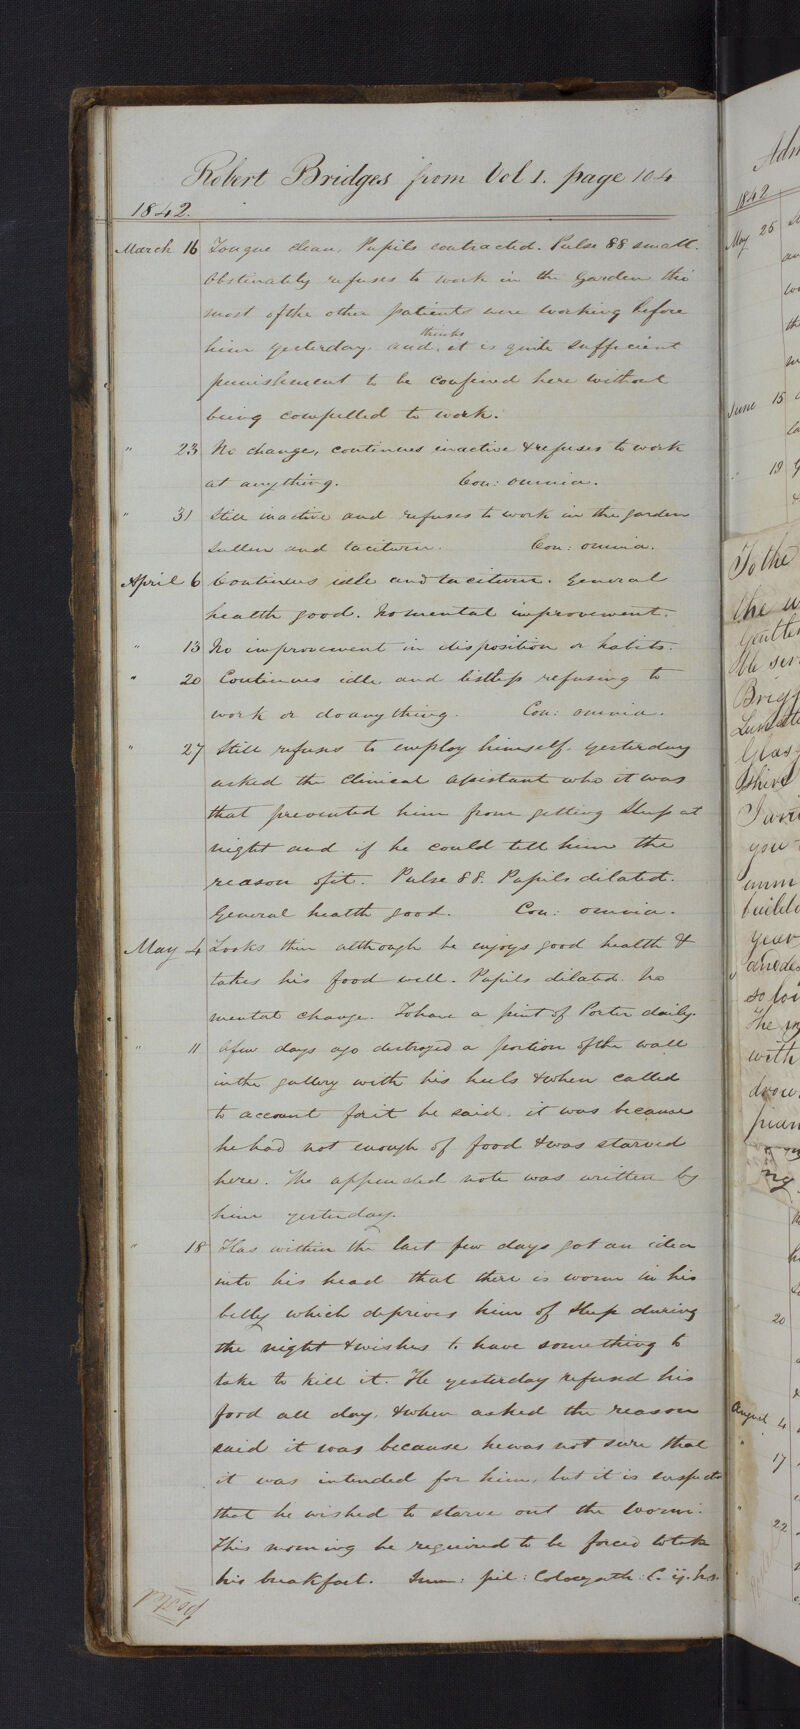 Robert Bridges from Vol 1. page 104
1842.
March 16 Tongue clean, Pupils contracted. Pulse 88 small.
Obstinately refuses to work in the Garden tho'
most of the other patients were working before
him yesterday. and thinks it is quite sufficient
punishment to be confined here without
being compelled to work.
" 23 No change, continues inactive & refuses to work
at anything. Con: omnia.
" 31 Still inactive and refuses to work in the garden
sullen and taciturn. Con: omnia.
April 6 Continues idle and taciturn. General
health good. No mental improvement.
" 13 No improvement in disposition or habits.
" 20 Continues idle and listless refusing to
work or do anything. Con: omnia.
" 27 Still refuses to employ himself. yesterday
asked the Clinical assistant who it was
that prevented him from getting sleep at
night and if he could tell him the
reason of it. Pulse 88. Pupils dilated.
General health good. Con: omnia.
May 4 Looks thin although he enjoys good health &
takes his food well. Pupils dilated. No
mental change. To have a pint of Porter daily.
" 11 A few days ago destroyed a portion of the wall
in the gallery with his heels & when called
to account for it he said. it was because
he had not enough of food & was starved
here. The appended note was written by
him yesterday.
" 18 Has within the last few days got an idea
into his head that there is worm in his
belly which deprives him of sleep during
the night & wishes to have something to
take to kill it. He yesterday refused his
food all day. & when asked the reason
said it was because he was not sure that
it was intended for him, but it is suspects
that he wished to starve out the worm.
This morning he required to be forced to take
his breakfast. Sum: pil: Colocynth: C. ij. h.s.
posted
1842
May 25
June 15
" 19
To the
the
Gentle
Brigg
Glas
shire
you
build
year
so
The
with
drow
20
August 4
" 17
" 22